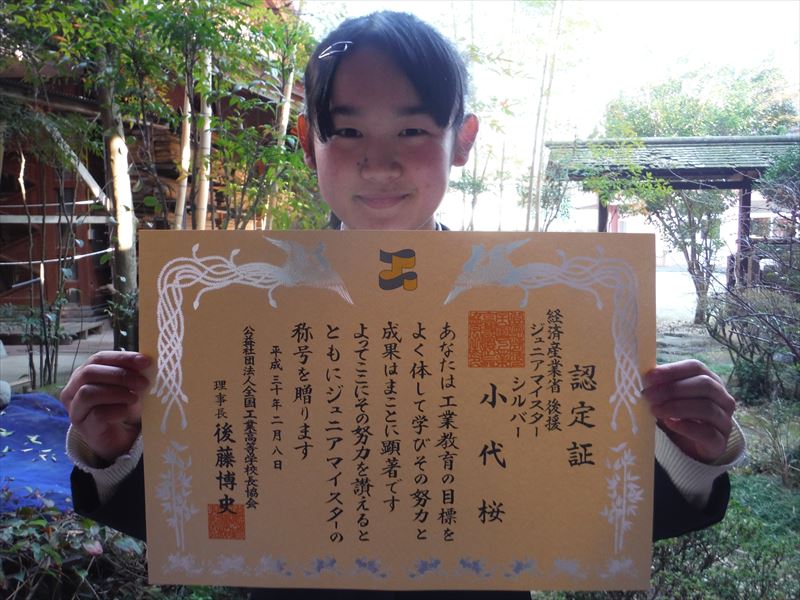 認定証
経済産業省 後援
ジュニアマイスター
シルバー
小代 桜
あなたは工業教育の目標を
よく体して学びその努力と
成果はまことに顕著です
よってここにその努力を讃えると
ともにジュニアマイスターの
称号を贈ります
平成三十年二月八日
公益社団法人全国工業高等学校長協会
理事長 後藤博史